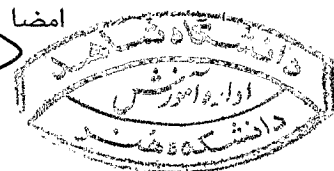 امضا
دانشگاه شاهد
اداره آموزش
دانشکده هنر